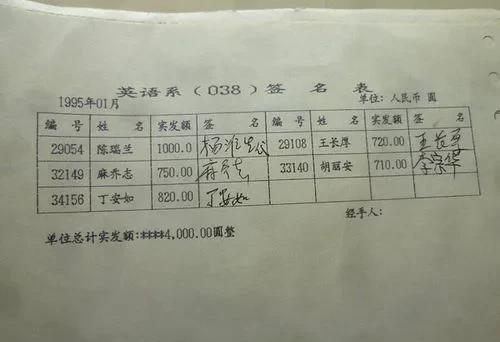 英语系(038)签 名 表
1995年01月 单位:人民币 圆
编 号 姓 名 实发额 签 名 编 号 姓 名 实发额 签 名
29054 陈瑞兰 1000.0 29108 王长厚 720.00 王长厚
32149 麻乔志 750.00 麻乔志 33140 胡丽安 710.00 李宗华
34156 丁安如 820.00 丁安如
经手人:
单位总计实发额:****4,000.00圆整